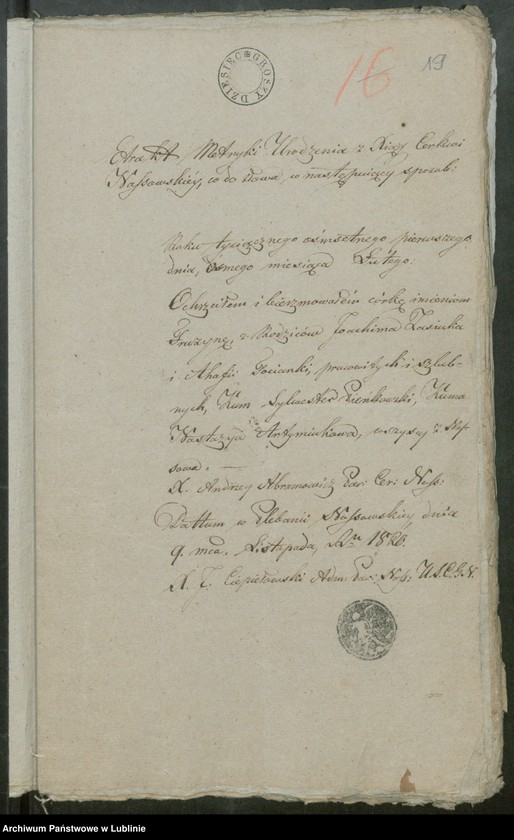 DZIESIĘĆ GROSZY
16 19
Extrakt Metryki Urodzenia z Xięgi Cerkwi
Nossowskiey, co do słowa, w następuiący sposób:
Roku tysiącznego ośmsetnego pierwszego
dnia, ósmego miesiąca Lutego.
Ochrzciłem i bierzmowałem córkę imieniem
Fruzynę, z Rodziców Joachima Zasiuka
i Ahafii Gocianki, pracowitych i szlub-
nych, Kum Sylwester Pieńkowski, Kuma
Nastazya Artymiukowa, wszyscy z Nos-
sowa. —
X. Andrzey Abramowicz Par: Cer: Noss:
Dattum w Plebanii Nossowskiey dnia
9. mca. Listopada, R. 1820.
X. J. Adm. Par: Nos:
Archiwum Państwowe w Lublinie